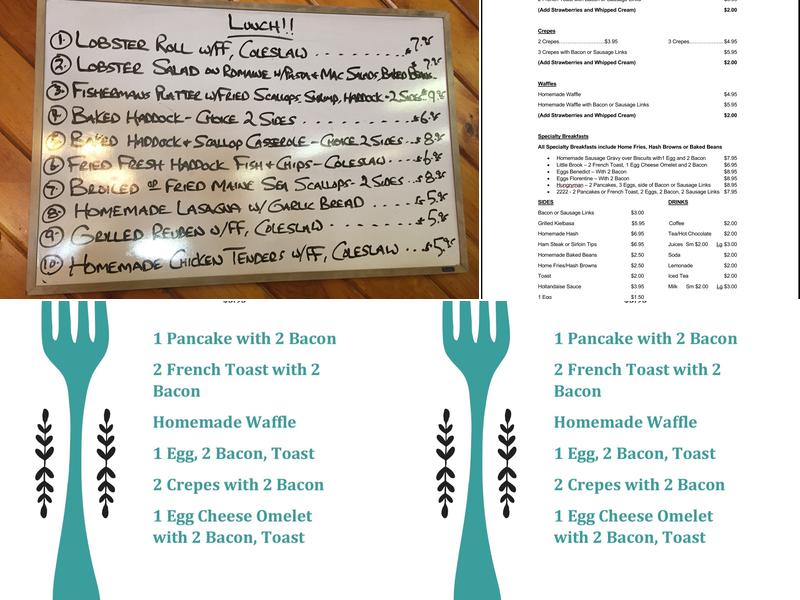 LUNCH!!
1. LOBSTER ROLL W/FF, COLESLAW ........ 7.95
2. LOBSTER SALAD ON ROMAINE W/PASTA & MAC SALADS, BAKED BEANS.. $7.95
3. FISHERMANS PLATTER W/FRIED SCALLOPS, SHRIMP, HADDOCK-2 SIDES..$9.95
4. BAKED HADDOCK- CHOICE 2 SIDES ....... $6.95
5. BAKED HADDOCK & SCALLOP CASSEROLE - CHOICE 2 SIDES...$8.95
6. FRIED FRESH HADDOCK FISH & CHIPS- COLESLAW .....$6.95
7. BROILED OR FRIED MAINE SEA SCALLOPS- 2 SIDES....$8.95
8. HOMEMADE LASAGNA W/ GARLIC BREAD .... $5.95
9. GRILLED REUBEN W/FF, COLESLAW - ......$5.95
10. HOMEMADE CHICKEN TENDERS W/FF, COLESLAW ...$5.95
(Add Strawberries and Whipped Cream) $2.00
Crepes
2 Crepes..............$3.95 3 Crepes................$4.95
3 Crepes with Bacon or Sausage Links $5.95
(Add Strawberries and Whipped Cream) $2.00
Waffles
Homemade Waffle $4.95
Homemade Waffle with Bacon or Sausage Links $5.95
(Add Strawberries and Whipped Cream) $2.00
Specialty Breakfasts
All Specialty Breakfasts include Home Fries, Hash Browns or Baked Beans
• Homemade Sausage Gravy over Biscuits with1 Egg and 2 Bacon $7.95
• Little Brook – 2 French Toast, 1 Egg Cheese Omelet and 2 Bacon $6.95
• Eggs Benedict – With 2 Bacon $8.95
• Eggs Florentine – With 2 Bacon $8.95
• Hungryman – 2 Pancakes, 3 Eggs, side of Bacon or Sausage Links $8.95
• 2222 - 2 Pancakes or French Toast, 2 Eggs, 2 Bacon, 2 Sausage Links $7.95
SIDES DRINKS
Bacon or Sausage Links $3.00
Grilled Kielbasa $5.95 Coffee $2.00
Homemade Hash $6.95 Tea/Hot Chocolate $2.00
Ham Steak or Sirloin Tips $6.95 Juices Sm $2.00 Lg $3.00
Homemade Baked Beans $2.50 Soda $2.00
Home Fries/Hash Browns $2.50 Lemonade $2.00
Toast $2.00 Iced Tea $2.00
Hollandaise Sauce $3.95 Milk Sm $2.00 Lg $3.00
1 Egg $1.50
1 Pancake with 2 Bacon
2 French Toast with 2
Bacon
Homemade Waffle
1 Egg, 2 Bacon, Toast
2 Crepes with 2 Bacon
1 Egg Cheese Omelet
with 2 Bacon, Toast
1 Pancake with 2 Bacon
2 French Toast with 2
Bacon
Homemade Waffle
1 Egg, 2 Bacon, Toast
2 Crepes with 2 Bacon
1 Egg Cheese Omelet
with 2 Bacon, Toast